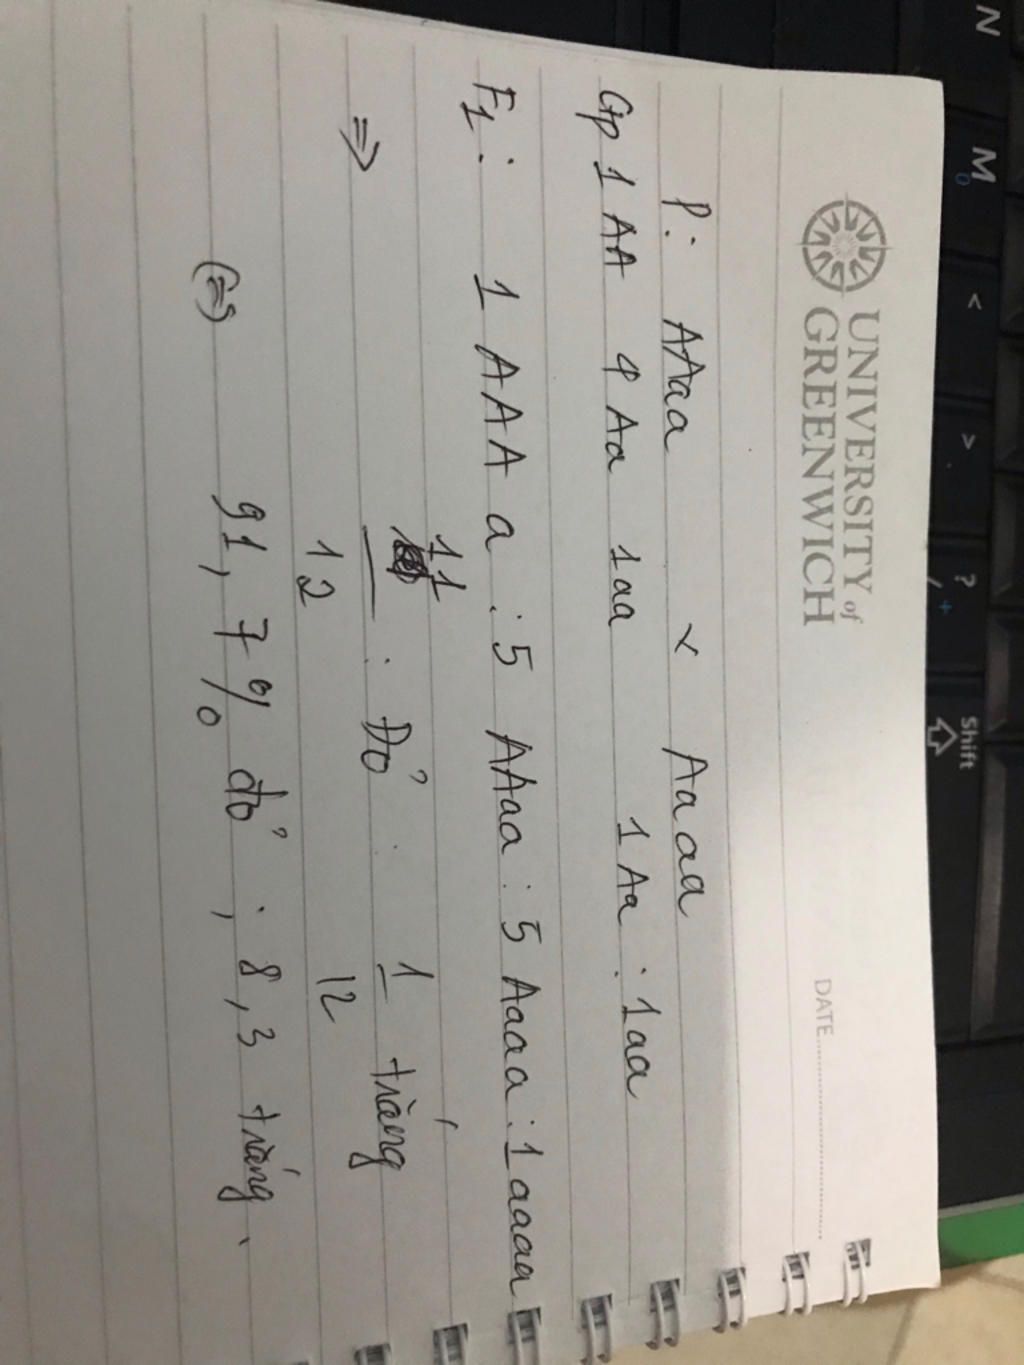 UNIVERSITY of
GREENWICH
DATE
P: AAaa x Aaaa
Gp 1 AA 4 Aa 1aa 1 Aa : 1aa
F1: 1 AAA a : 5 AAaa : 5 Aaaa : 1 aaaa
=> 11/12 : Đỏ : 1/12 trắng
(=) 91,7% đỏ ; 8,3 trắng.
N
M
0
<
>
?
/
+
Shift